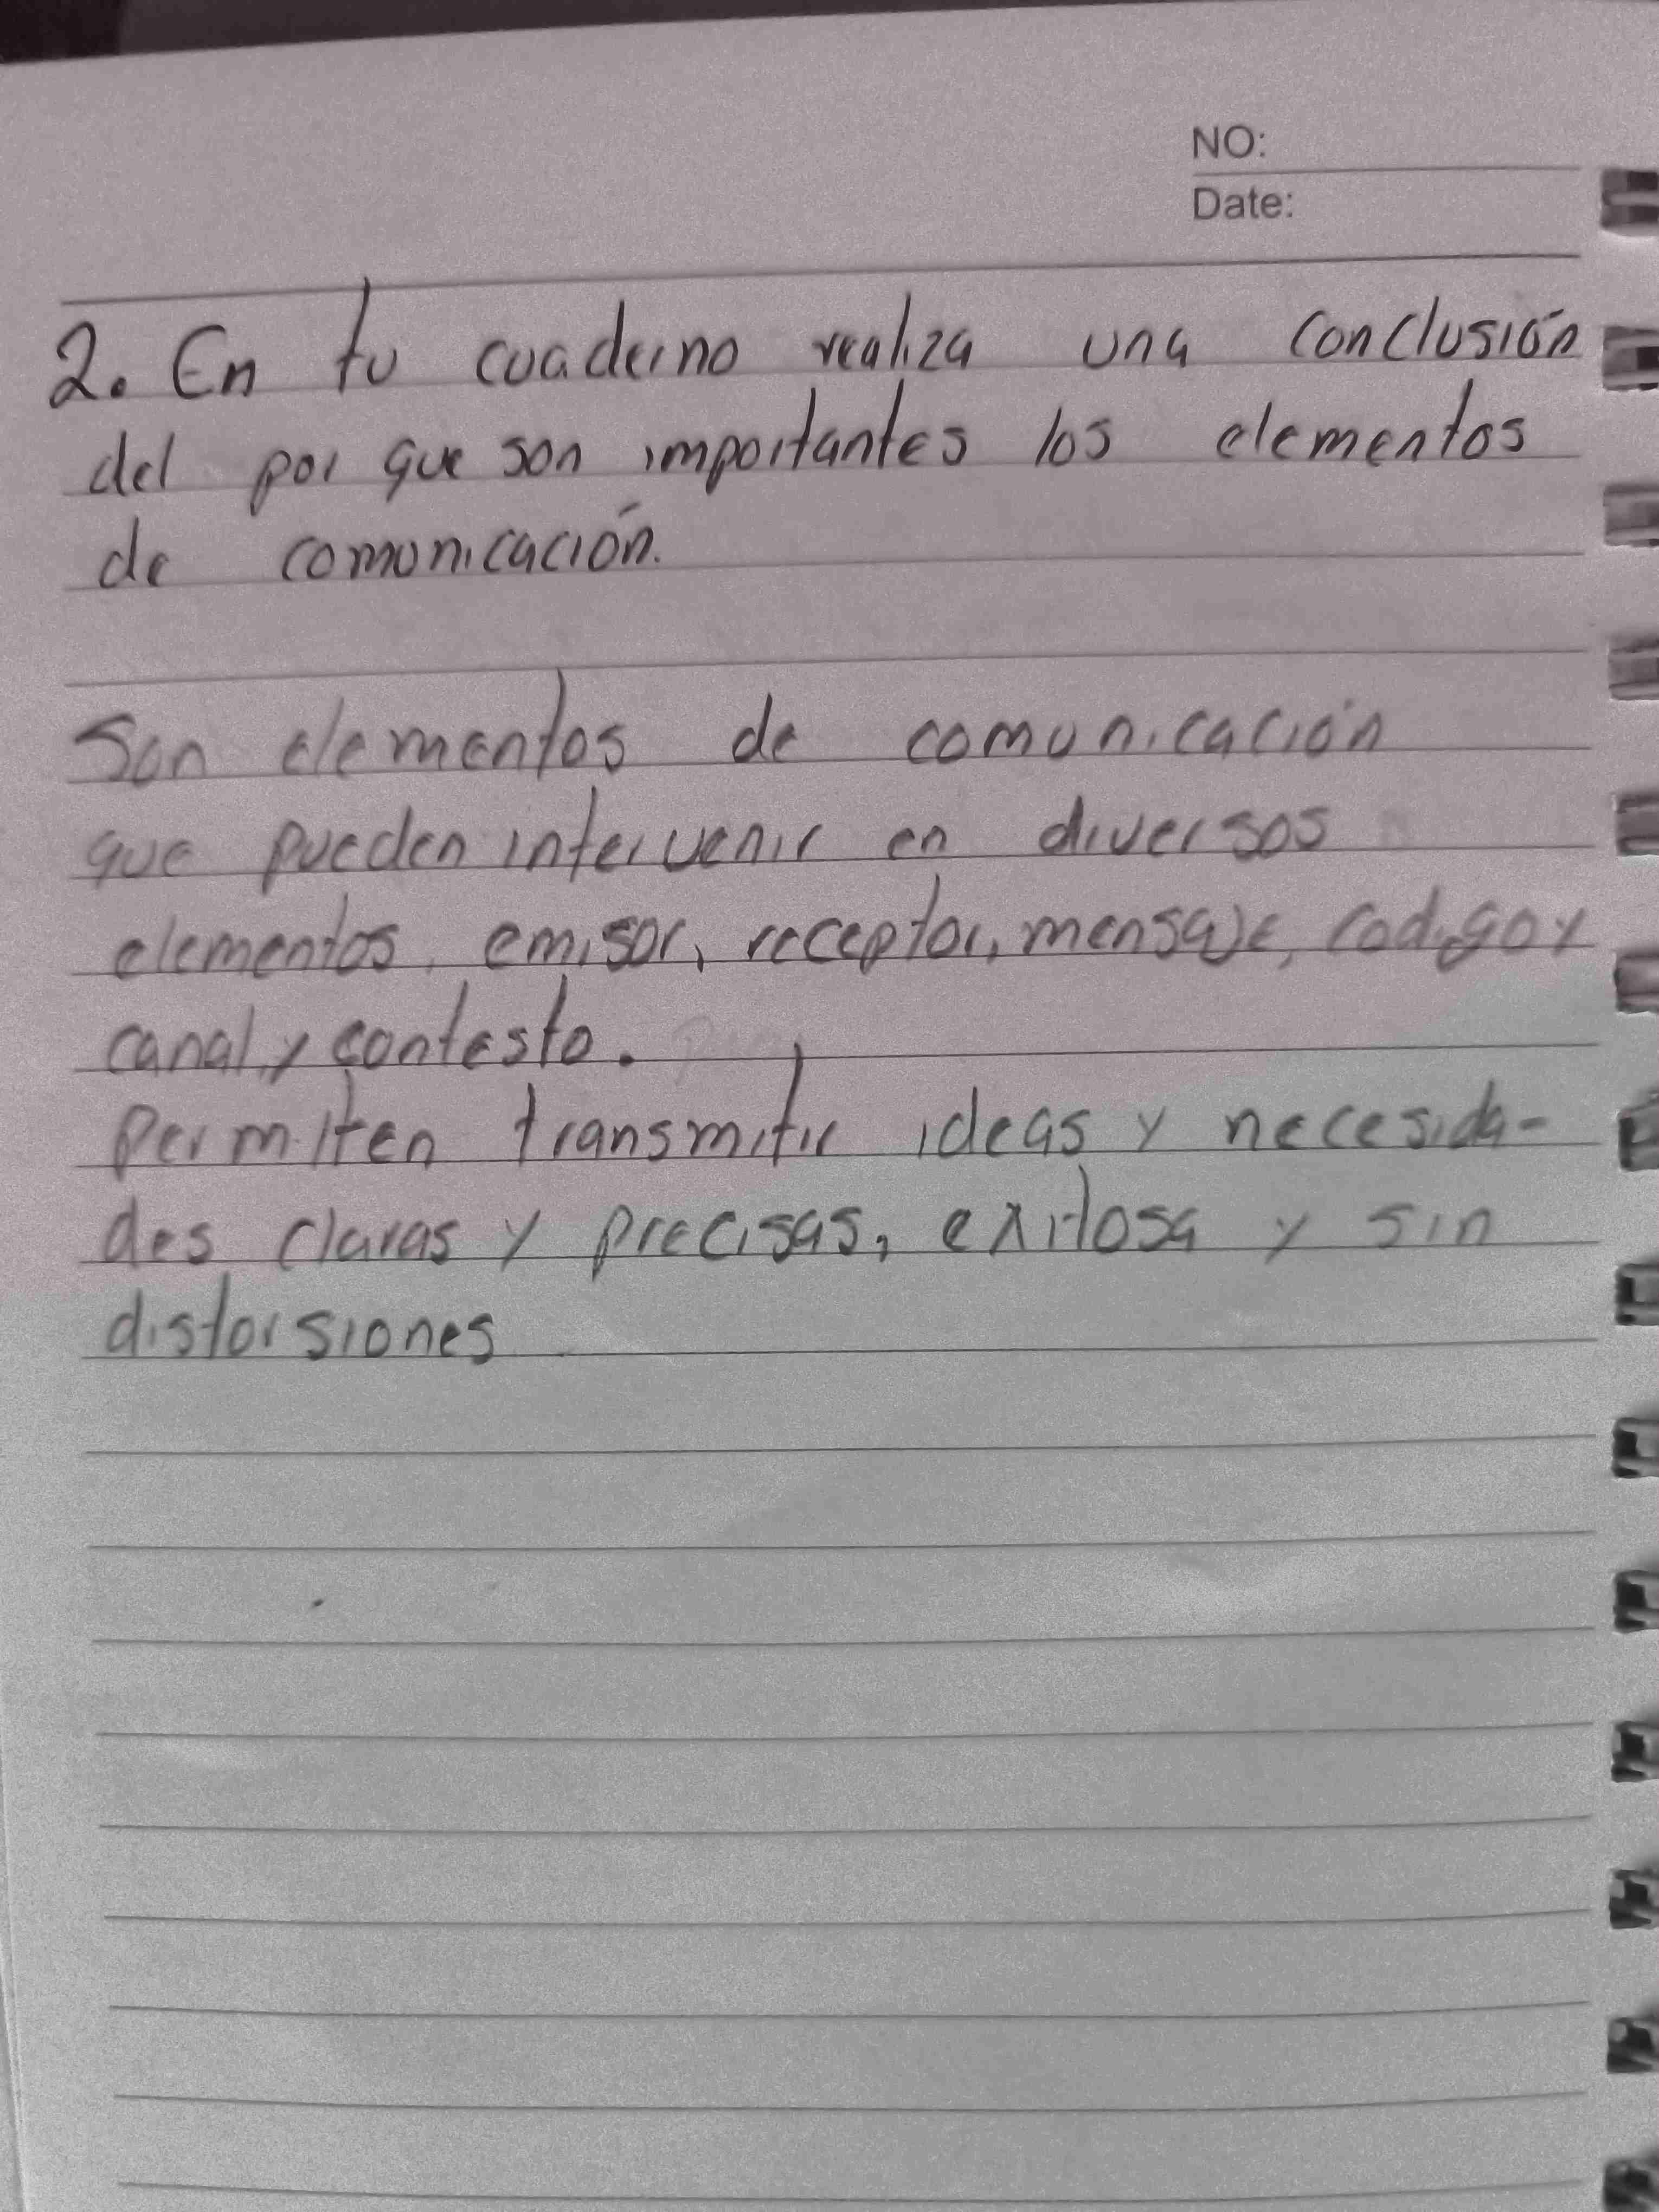 NO:
Date:
2. En tu cuaderno realiza una conclusión
del por que son importantes los elementos
de comunicación.
Son elementos de comunicación
que pueden intervenir en diversos
elementos, emisor, receptor, mensaje, codigo y
canal, y contesto.
Permiten transmitir ideas y necesida-
des claras y precisas, exitosa y sin
distorsiones